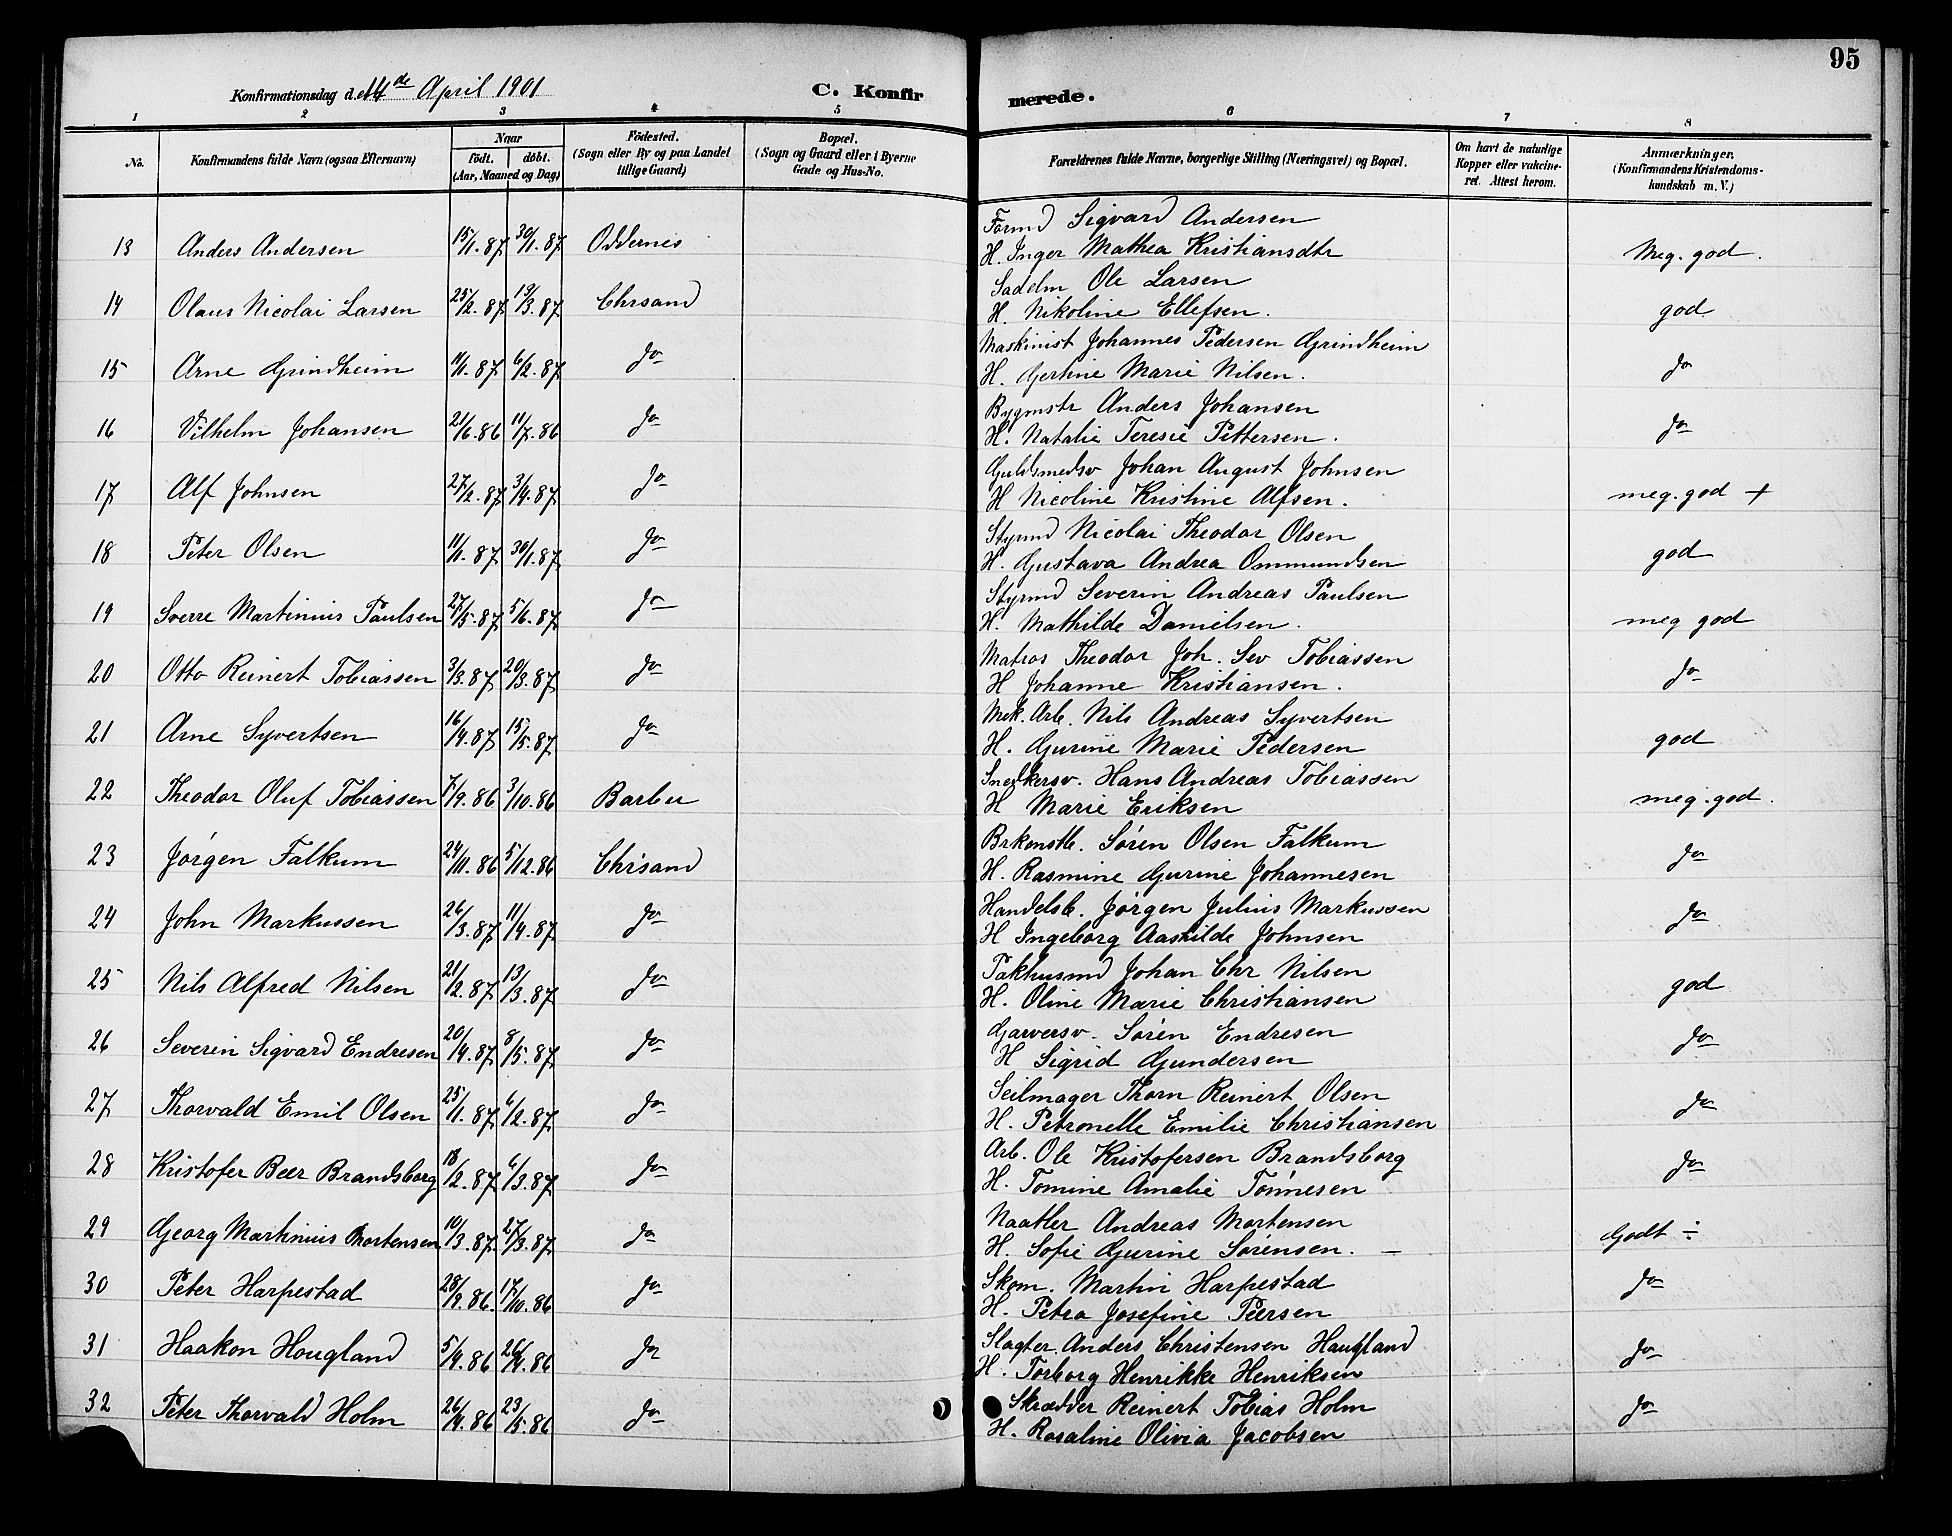 95
Konfirmationsdag d. 14de April 1901
C. Konfirmerede.
1 2 3 4 5 6 7 8
No.
Konfirmandens fulde Navn (ogsaa Efternavn)
Naar
født. døbt.
(Aar, Maaned og Dag)
Fødested.
(Sogn eller By og paa Landet
tillige Gaard)
Bopæl.
(Sogn og Gaard eller i Byerne
Gade og Hus-No.
Forældrenes fulde Navne, borgerlige Stilling (Næringsvei) og Bopæl.
Om havt de naturlige
Kopper eller vakcine-
ret. Attest herom.
Anmærkninger.
(Konfirmandens Kristendoms-
kundskab m. V.)
13 Anders Andersen 15/1.87 30/1.87 Oddernes Formd Sigvard Andersen
H. Inger Mathea Kristiansdtr Meg. god.
14 Olaus Nicolai Larsen 25/2.87 13/3.87 Chrsand Sadelm Ole Larsen
H. Nikoline Ellefsen. god
15 Arne Grindheim 11/1.87 6/2.87 do Maskinist Johannes Pedersen Grindheim
H. Gertine Marie Nilsen. do
16 Vilhelm Johansen 21/6.86 11/7.86 do Bygmstr Anders Johansen
H. Natalie Teresie Pettersen. do
17 Alf Johnsen 27/2.87 3/4.87 do Guldsmedsv Johan August Johnsen
H Nicoline Kristine Alfsen. meg. god +
18 Peter Olsen 11/1.87 30/1.87 do Styrmd Nicolai Theodor Olsen
H. Gustava Andrea Ommundsen god
19 Sverre Martinius Paulsen 27/5.87 5/6.87 do Styrmd Severin Andreas Paulsen
H. Mathilde Danielsen. meg god
20 Otto Reinert Tobiassen 3/3.87 20/3.87 do Matros Theodor Joh. Sev Tobiassen
H Johanne Kristiansen. do
21 Arne Syvertsen 16/4.87 15/5.87 do Mek. Arb. Nils Andreas Syvertsen
H. Gurine Marie Pedersen god
22 Theodor Oluf Tobiassen 7/9.86 3/10.86 Barbu Snedkersv. Hans Andreas Tobiassen
H Marie Eriksen meg. god.
23 Jørgen Falkum 24/11.86 5/12.86 Chrsand Brkonstb. Søren Olsen Falkum
H. Rasmine Gurine Johannesen do
24 John Markussen 26/3.87 11/4.87 do Handelsb. Jørgen Julius Markussen
H Ingeborg Aashilde Johnsen do
25 Nils Alfred Nilsen 21/2.87 13/3.87 do Pakhusmd Johan Chr Nilsen
H. Oline Marie Christiansen god
26 Severin Sigvard Endresen 20/4.87 8/5.87 do Garversv. Søren Endresen
H Sigrid Gundersen do
27 Thorvald Emil Olsen 25/1.87 6/2.87 do Seilmager Thorn Reinert Olsen
H. Petronelle Emilie Christiansen do
28 Kristofer Beer Brandsborg 18/2.87 6/3.87 do Arb. Ole Kristofersen Brandsborg
H. Tomine Amalie Tønnesen do
29 Georg Martinius Mortensen 10/3.87. 27/3.87. do Naatler Andreas Mortensen
H. Sofie Gurine Sørensen. — Godt ÷
30 Peter Harpestad 28/9.86. 17/10.86 do Skom. Martin Harpestad
H. Petra Josefine Peersen do
31 Haakon Hougland 5/4.86 26/4.86 do Slagter Anders Christensen Haugland
H. Torborg Henrikke Henriksen do
32 Peter Thorvald Holm 26/4.86 23/5.86 do Skrædder Reinert Tobias Holm
H. Rosaline Olivia Jacobsen do